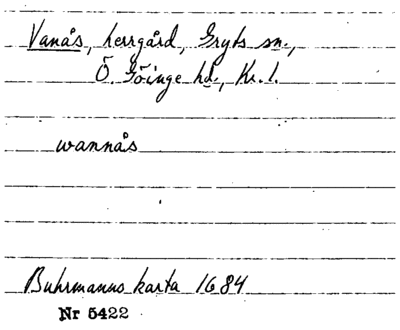 Vanås, herrgård, Gryts sn.,
Ö. Göinge hd., Kr. l.
wannås
Buhrmanns karta 1684
Nr 5422